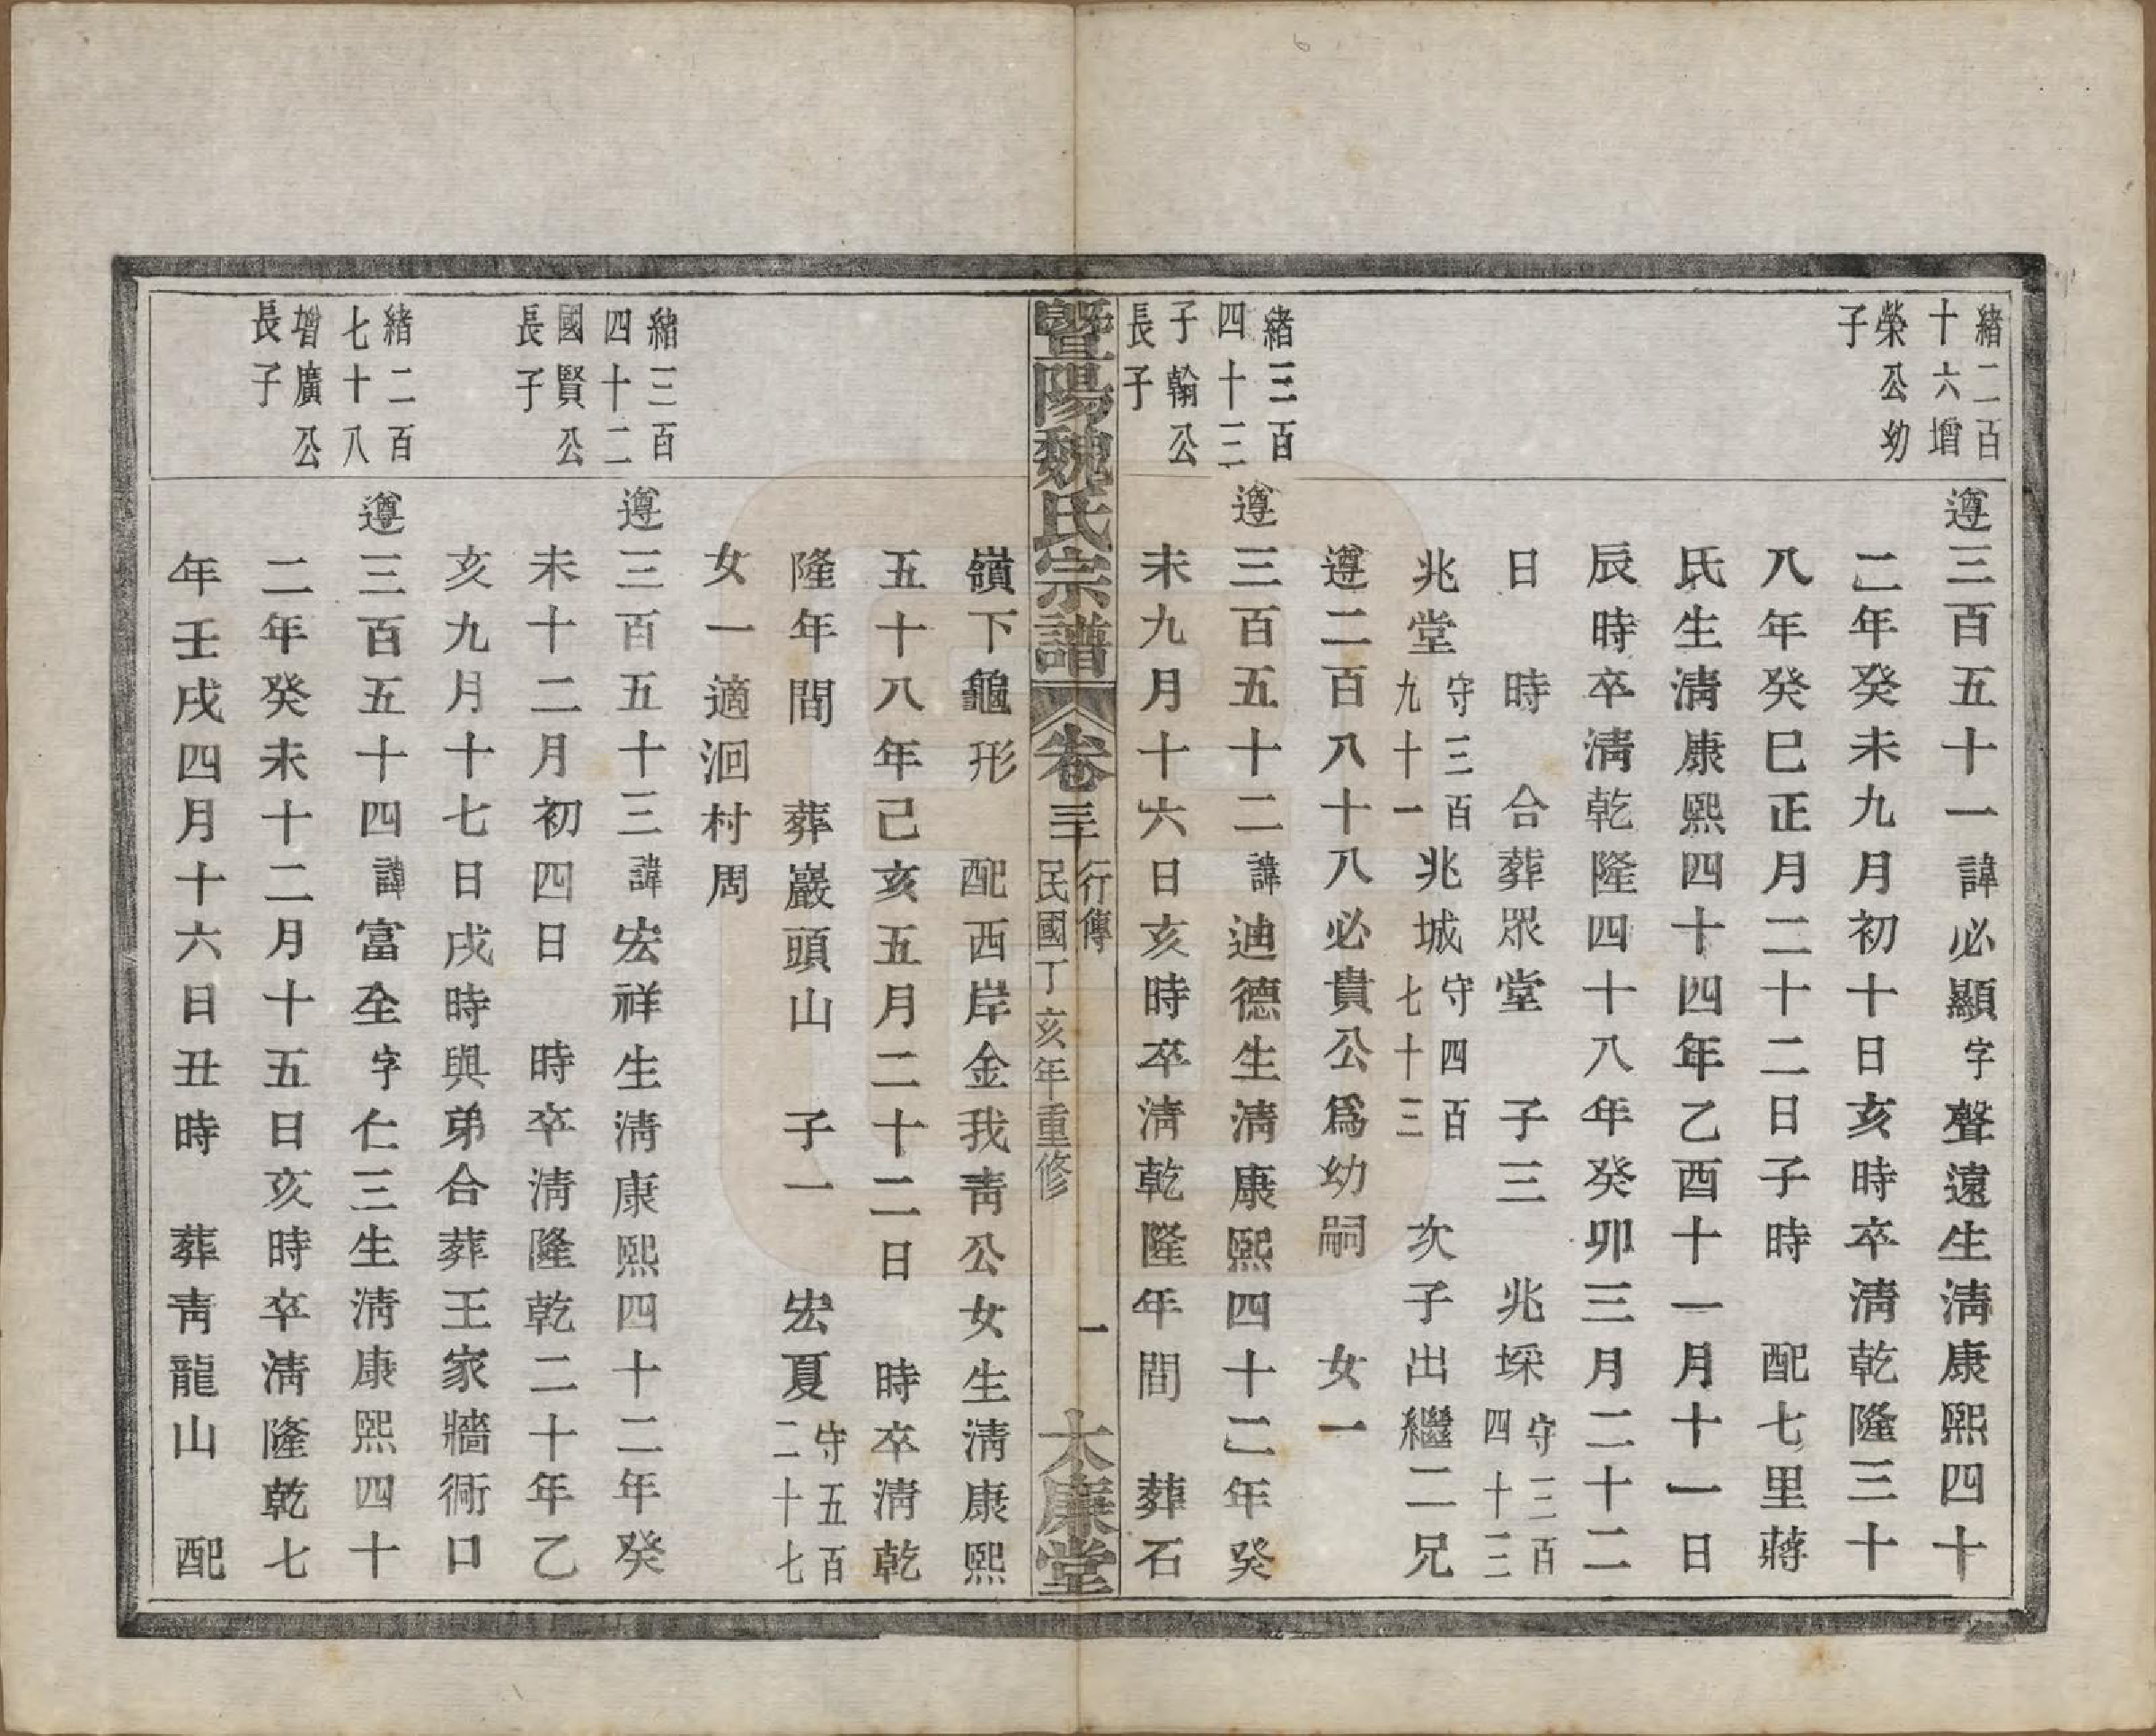 緒二百
十六增
榮公幼
子
遵三百五十一諱必顯字聲遠生淸康熙四十
二年癸未九月初十日亥時卒淸乾隆三十
八年癸巳正月二十二日子時　配七里蔣
氏生淸康熙四十四年乙酉十一月十一日
辰時卒淸乾隆四十八年癸卯三月二十二
日　時　合葬眾堂　子三　兆埰守三百四十三
兆堂守三百九十一兆城守四百七十三　次子出繼二兄
遵二百八十八必貴公爲幼嗣　女一
緒三百
四十三
子翰公
長子
遵三百五十二諱迪德生淸康熙四十二年癸
未九月十六日亥時卒淸乾隆年間　葬石
暨陽魏氏宗譜　卷三十　行傳　民國丁亥年重修　一　大廉堂
嶺下龜形　配西岸金我靑公女生淸康熙
五十八年己亥五月二十二日　時卒淸乾
隆年間　葬巖頭山　子一　宏夏守五百二十七
女一適洄村周
緒三百
四十二
國賢公
長子
遵三百五十三諱宏祥生淸康熙四十二年癸
未十二月初四日　時卒淸隆乾二十年乙
亥九月十七日戌時與弟合葬王家牆衕口
緒二百
七十八
增廣公
長子
遵三百五十四諱富全字仁三生淸康熙四十
二年癸未十二月十五日亥時卒淸隆乾七
年壬戌四月十六日丑時　葬靑龍山　配